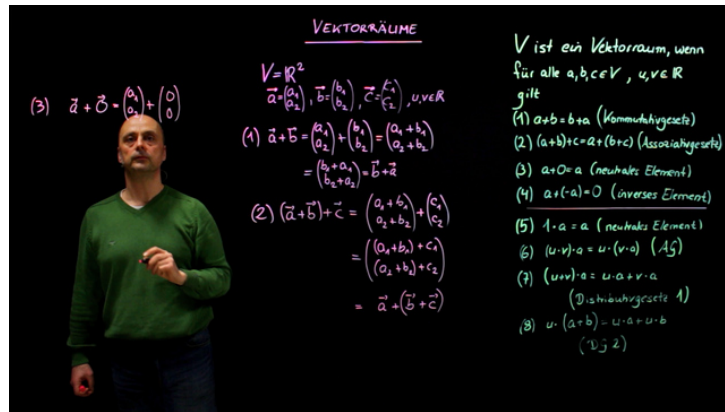 VEKTORRÄUME
(3) a⃗ + 0⃗ = (a₁ a₂) + (0 0)
V = ℝ²
a⃗ = (a₁ a₂), b⃗ = (b₁ b₂), c⃗ = (c₁ c₂), u,v∈ℝ
(1) a⃗ + b⃗ = (a₁ a₂) + (b₁ b₂) = (a₁+b₁ a₂+b₂)
= (b₁+a₁ b₂+a₂) = b⃗ + a⃗
(2) (a⃗ + b⃗) + c⃗ = (a₁+b₁ a₂+b₂) + (c₁ c₂)
= ((a₁+b₁)+c₁ (a₂+b₂)+c₂)
= a⃗ + (b⃗ + c⃗)
V ist ein Vektorraum, wenn
für alle a,b,c∈V , u,v∈ℝ
gilt
(1) a+b=b+a (Kommutativgesetz)
(2) (a+b)+c=a+(b+c) (Assoziativgesetz)
(3) a+0=a (neutrales Element)
(4) a+(-a)=0 (inverses Element)
(5) 1·a=a (neutrales Element)
(6) (u·v)·a=u·(v·a) (AG)
(7) (u+v)·a=u·a+v·a
(Distributivgesetz 1)
(8) u·(a+b)=u·a+u·b
(Dg 2)